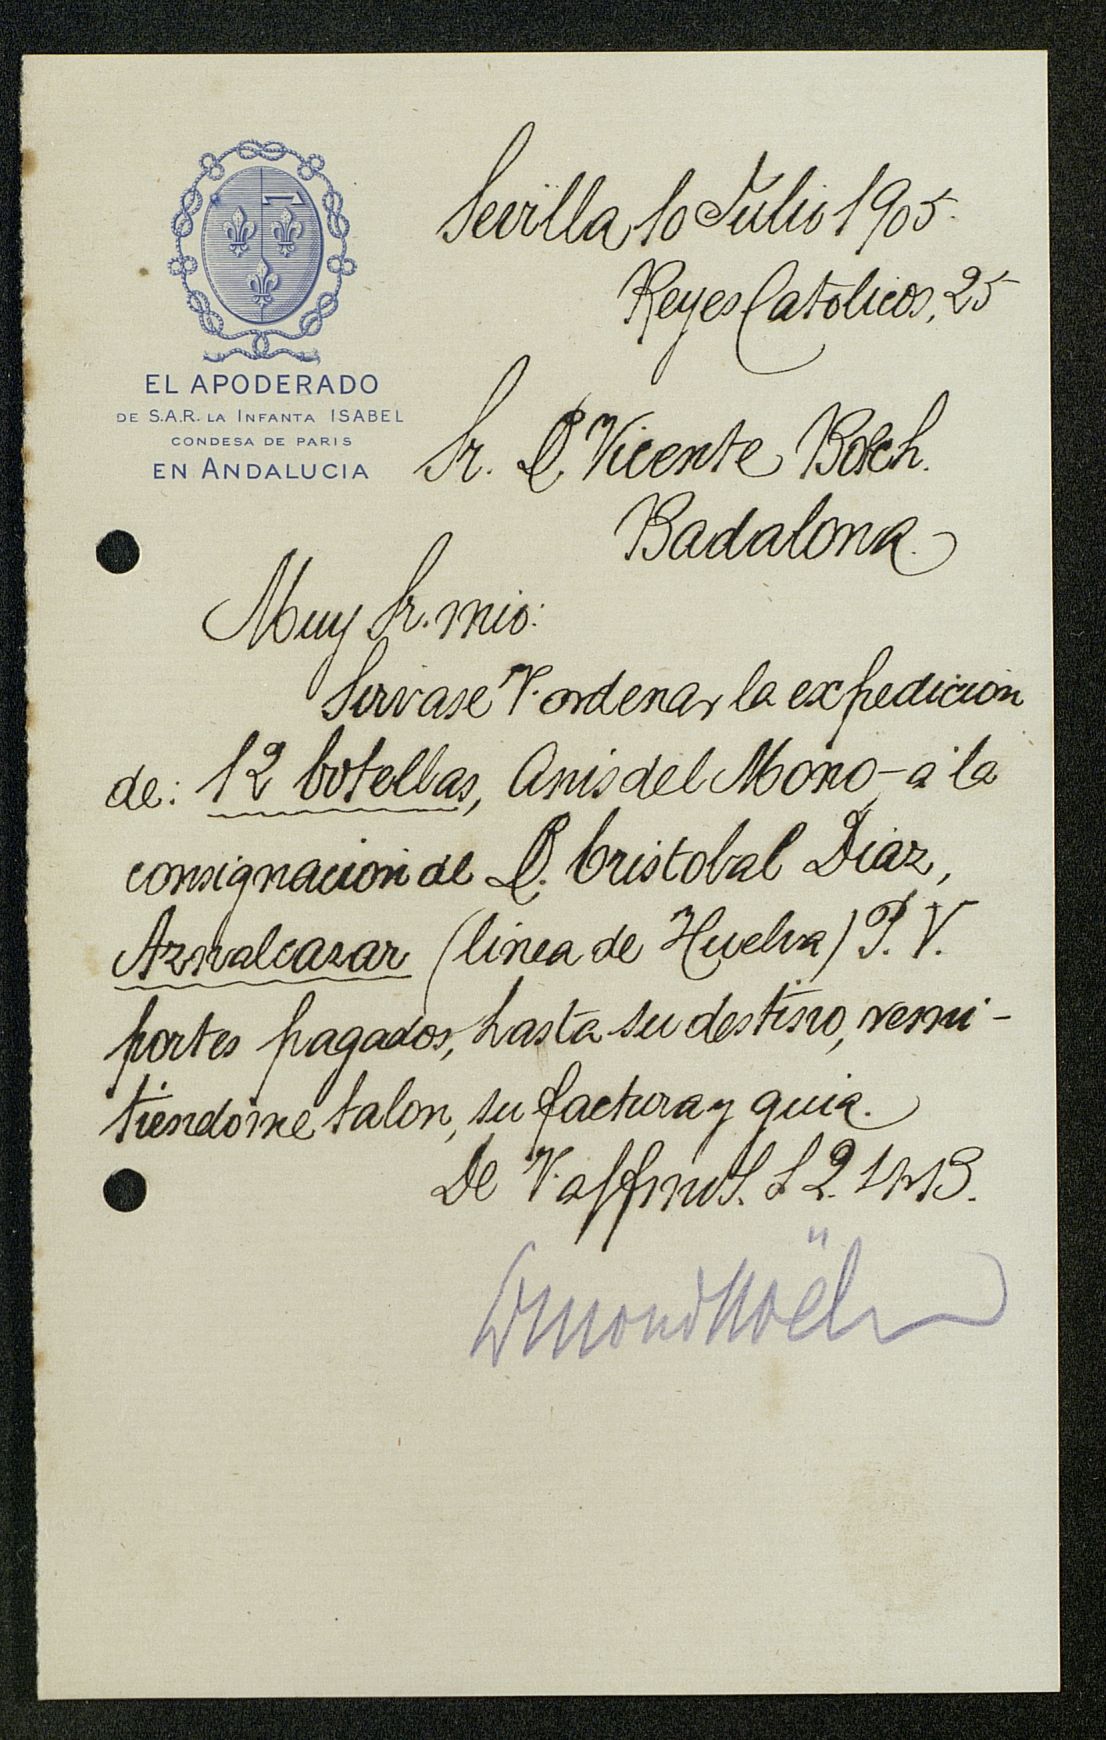 EL APODERADO
DE S.A.R. LA INFANTA ISABEL
CONDESA DE PARIS
EN ANDALUCIA
Sevilla 10 Julio 1905.
Reyes Catolicos, 25
Sr. D. Vicente Bosch.
Badalona.
Muy Sr. mio:
Sirvase V. ordenar la expedicion
de: 12 botellas, Anis del Mono - a la
consignacion de D. Cristobal Diaz,
Aznalcazar (linea de Huelva) P. V.
portes pagados, hasta su destino, remi-
tiendome talon, su factura y guia.
De V. affmo S. S. Q.
Edmond Noël